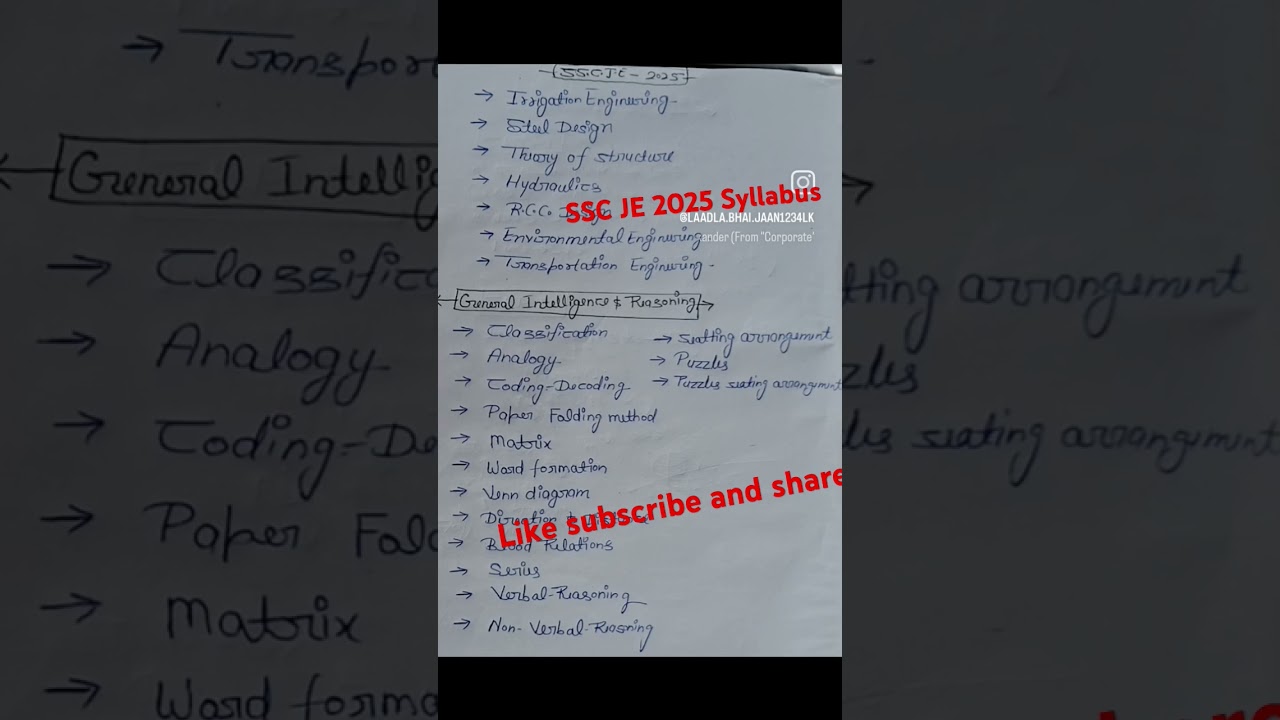 SSC JE - 2025
→ Irrigation Engineering -
→ Steel Design
→ Theory of structure
→ Hydraulics
→ R.C.C. Design
→ Environmental Engineering
→ Transportation Engineering -
SSC JE 2025 Syllabus
@LAADLA.BHAI.JAAN1234LK
ander (From "Corporate'
General Intelligence & Reasoning
→ Classification
→ Analogy
→ Coding-Decoding
→ Paper Folding method
→ Matrix
→ Word formation
→ Venn diagram
→ Direction &
→ Blood Relations
→ Series
→ Verbal-Reasoning
→ Non-Verbal-Reasoning
→ seatting arrangement
→ Puzzles
→ Puzzles seating arrangement
Like subscribe and share
→ Transport
General Intellig
→ Classific
→ Analogy
→ Coding-De
→ Paper Fol
→ Matrix
→ Word forma
tting arrangement
zles
les seating arrangement